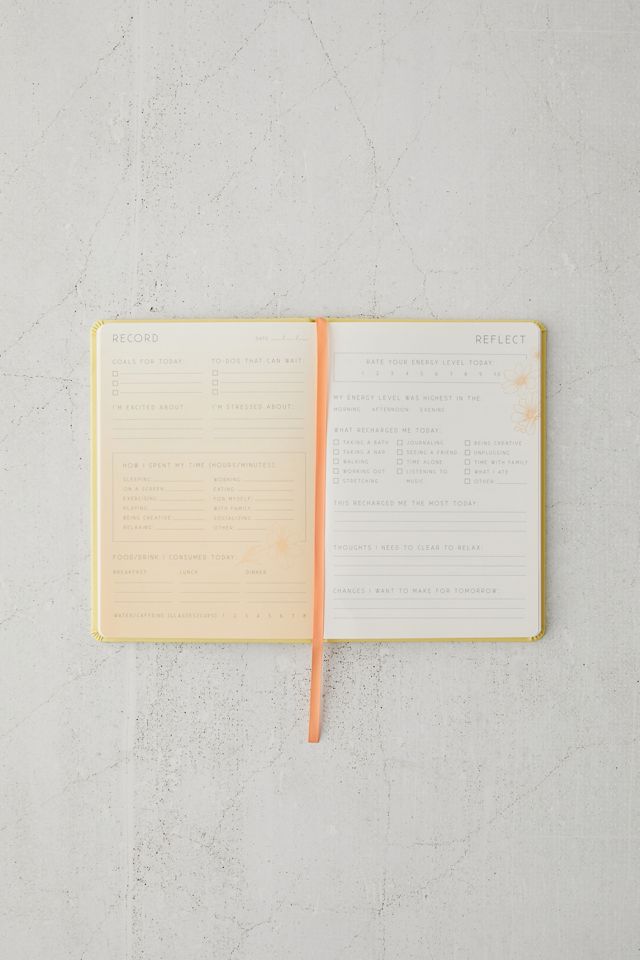 RECORD
DATE
GOALS FOR TODAY:
TO-DOS THAT CAN WAIT:
I'M EXCITED ABOUT:
I'M STRESSED ABOUT:
HOW I SPENT MY TIME (HOURS/MINUTES)
SLEEPING:
WORKING:
ON A SCREEN:
EATING:
EXERCISING:
FOR MYSELF:
PLAYING:
WITH FAMILY:
BEING CREATIVE:
SOCIALIZING:
RELAXING:
OTHER:
FOOD/DRINK I CONSUMED TODAY:
BREAKFAST: LUNCH: DINNER:
WATER/CAFFEINE (GLASSES/CUPS) 1 2 3 4 5 6 7 8
REFLECT
RATE YOUR ENERGY LEVEL TODAY:
1 2 3 4 5 6 7 8 9 10
MY ENERGY LEVEL WAS HIGHEST IN THE:
MORNING AFTERNOON EVENING
WHAT RECHARGED ME TODAY:
TAKING A BATH
JOURNALING
BEING CREATIVE
TAKING A NAP
SEEING A FRIEND
UNPLUGGING
WALKING
TIME ALONE
TIME WITH FAMILY
WORKING OUT
LISTENING TO
MUSIC
WHAT I ATE
STRETCHING
OTHER
THIS RECHARGED ME THE MOST TODAY:
THOUGHTS I NEED TO CLEAR TO RELAX:
CHANGES I WANT TO MAKE FOR TOMORROW: